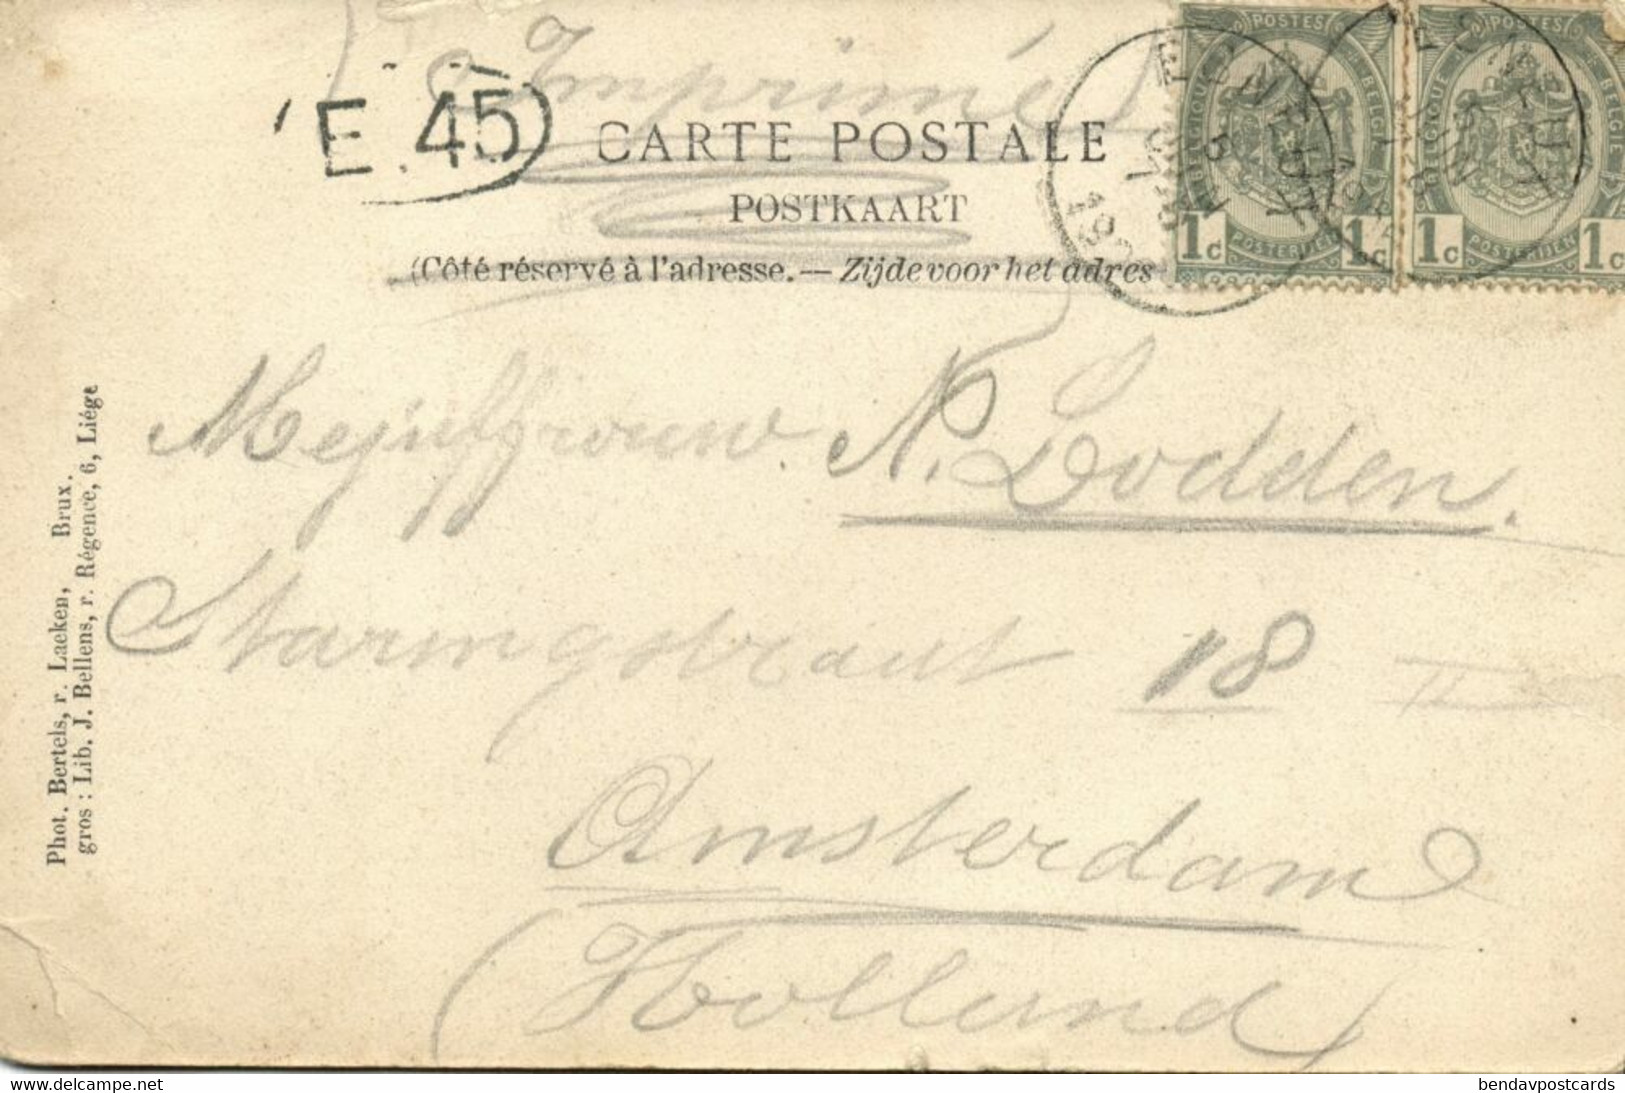 Imprimé
E. 45
CARTE POSTALE
POSTKAART
(Côté réservé à l'adresse. — Zijde voor het adres
POSTES
BELGIQUE
BELGIË
1c 1c
POSTERIJEN
POSTES
BELGIQUE
BELGIË
1c 1c
POSTERIJEN
Mejuffrouw. N. Lodden.
Staringstraat 18 II
Amsterdam
(Holland)
Phot. Bertels, r. Laeken, Brux.
gros : Lib. J. Bellens, r. Régence, 6, Liége
the-neverending-story.net
bendavpostcards